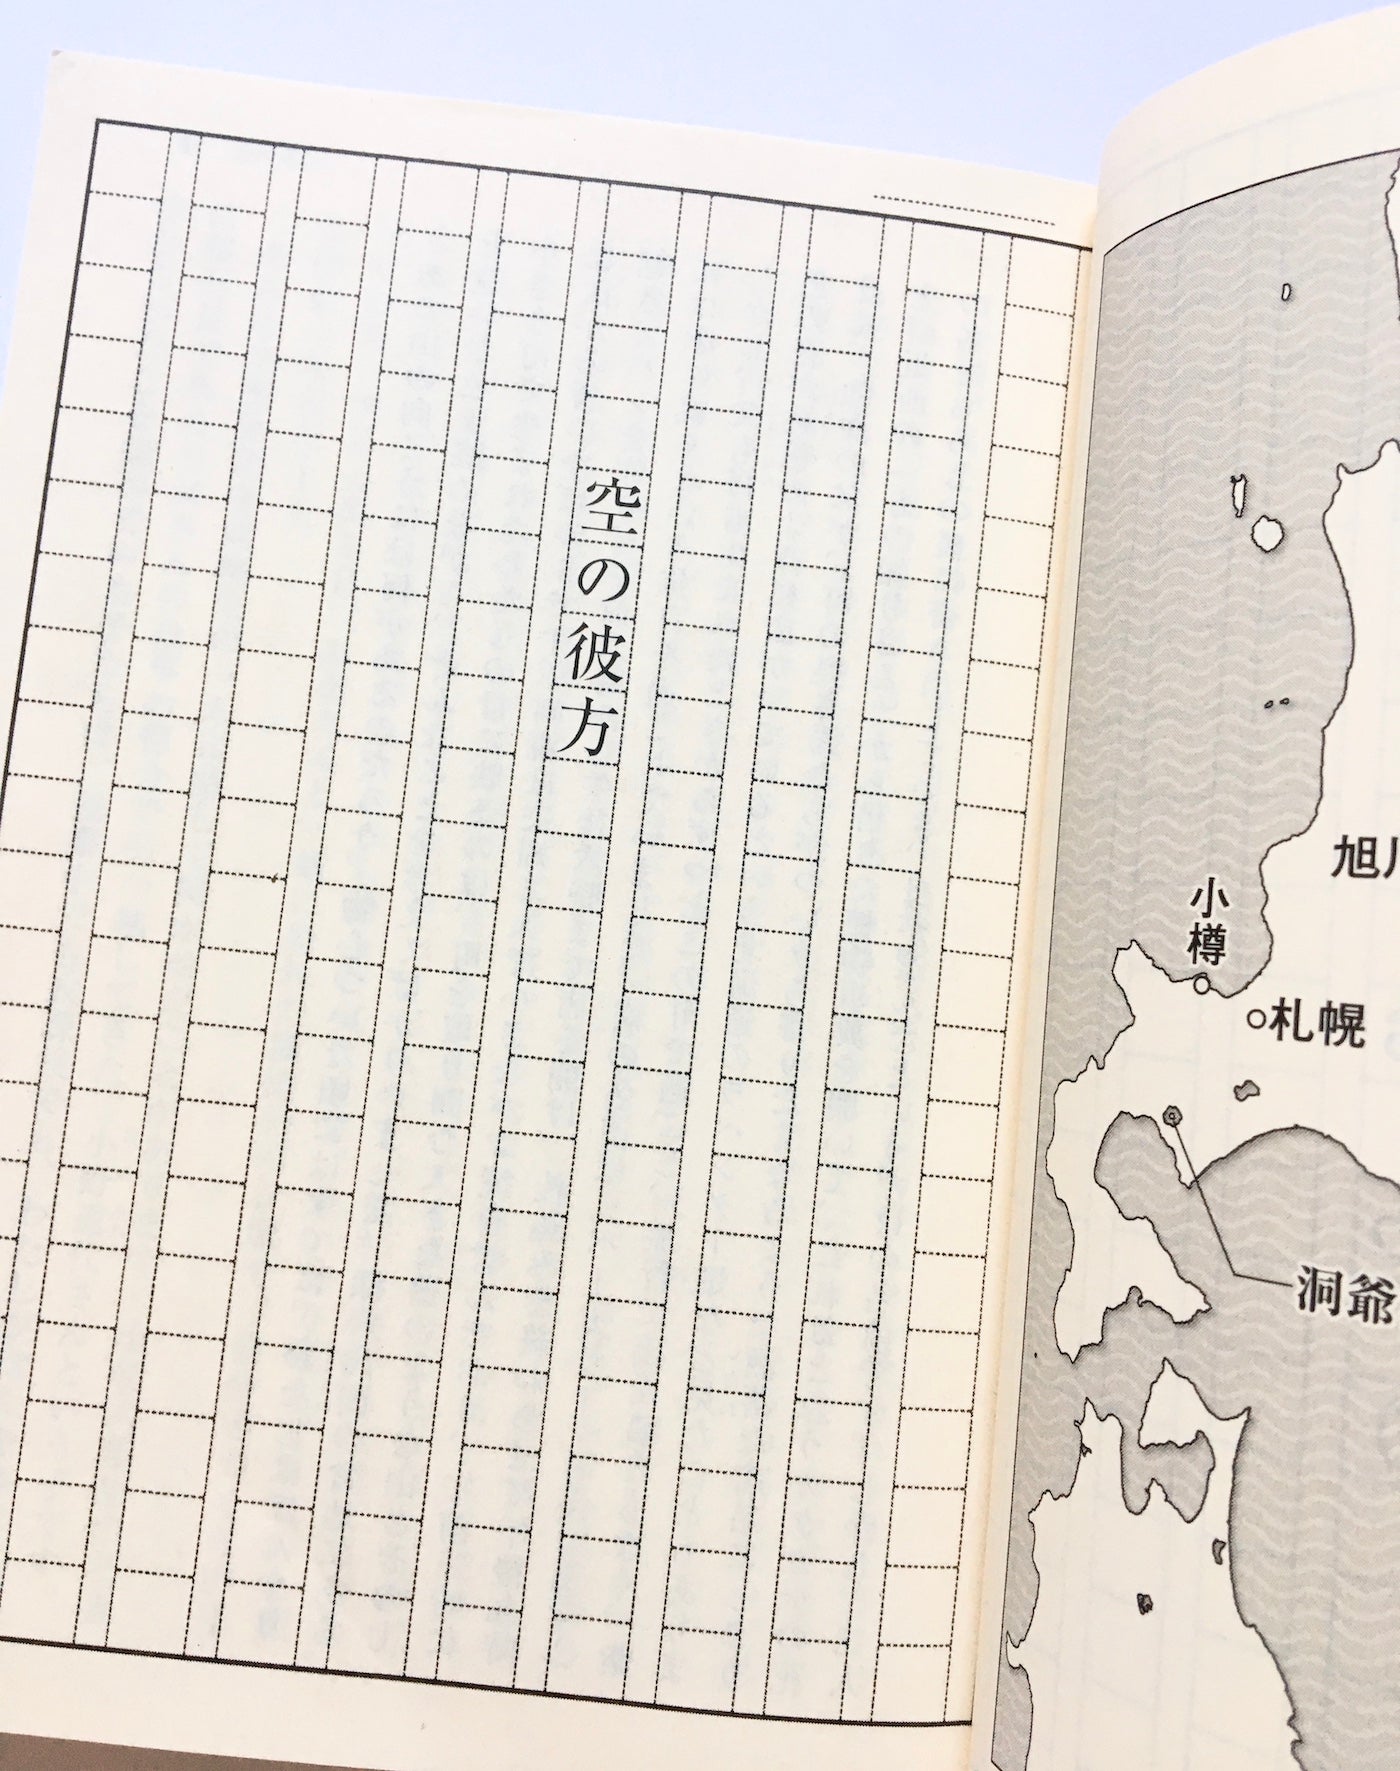 空の彼方
旭川
小樽
札幌
洞爺